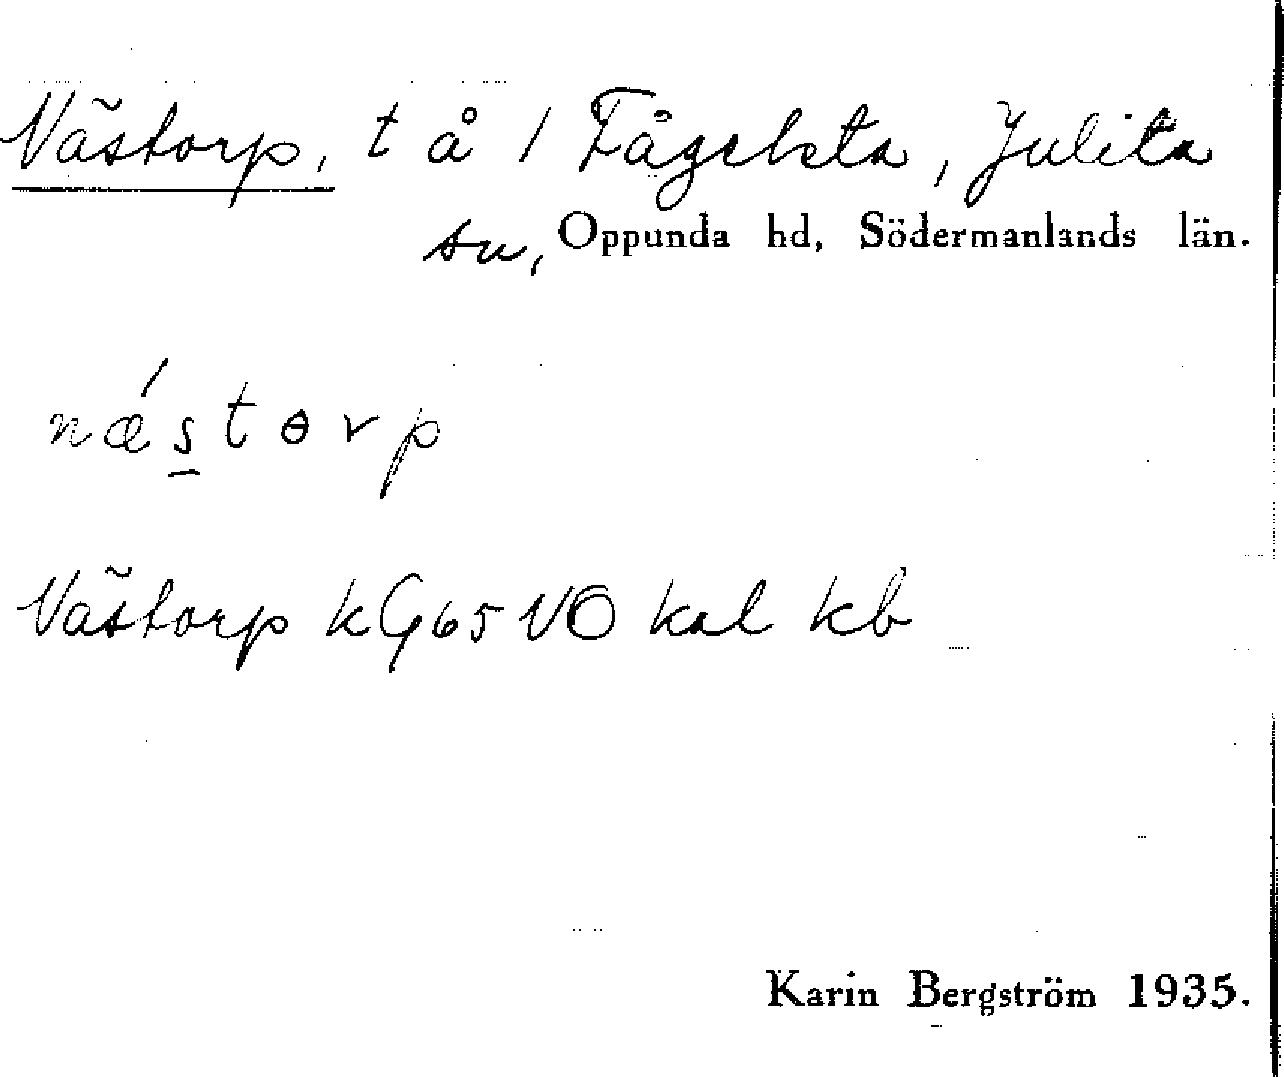 Nästorp, t å 1 Fågelsta, Julita
sn, Oppunda hd, Södermanlands län.
næ´s̲tɵrp
Nästorp kG65 VÖ kal kb
Karin Bergström 1935.